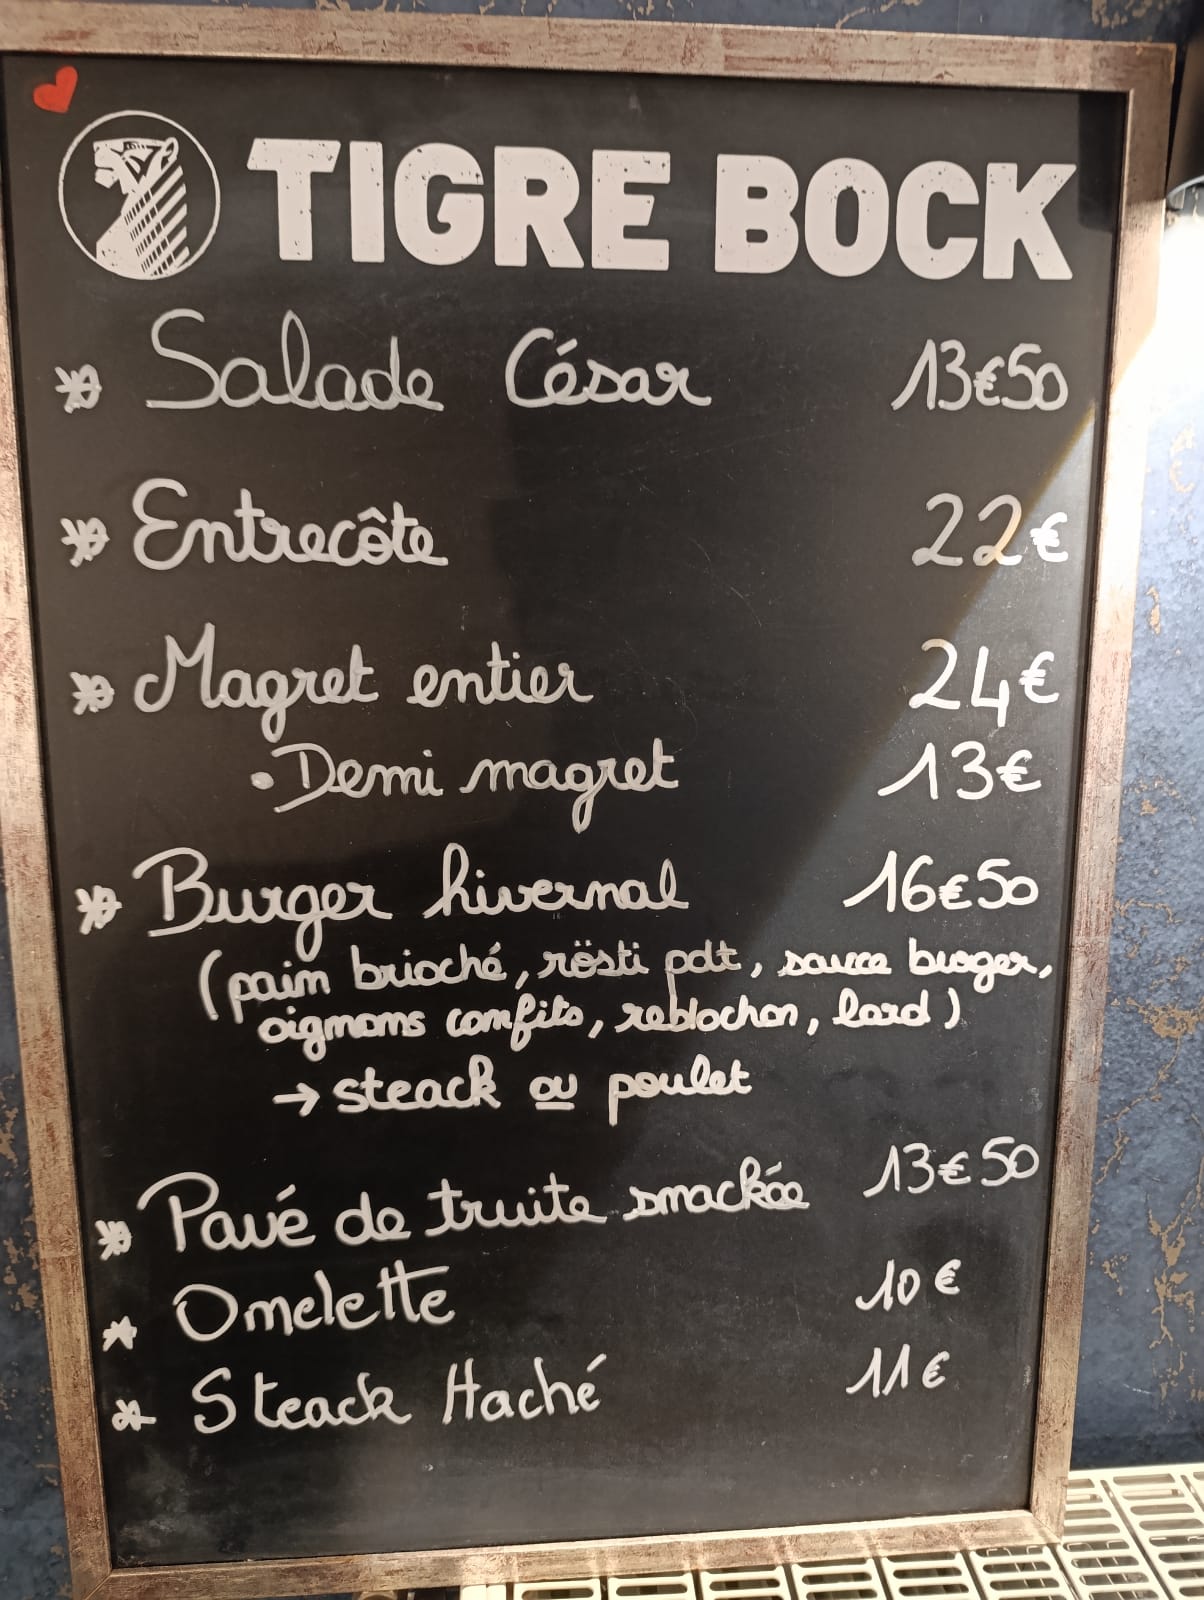 TIGRE BOCK
Salade César 13€50
Entrecôte 22€
Magret entier 24€
• Demi magret 13€
Burger hivernal 16€50
(pain brioché, rösti pdt, sauce burger,
oignons confits, reblochon, lard)
→ steack ou poulet
Pavé de truite smackée 13€50
Omelette 10€
Steack Haché 11€